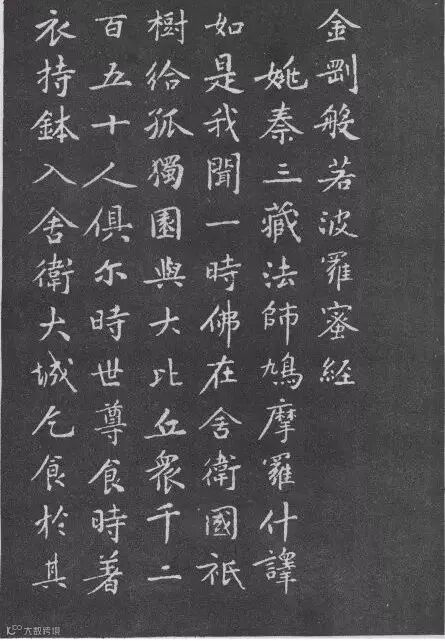 金剛般若波羅蜜經
姚秦三藏法師鳩摩羅什譯
如是我聞一時佛在舍衛國祇
樹給孤獨園與大比丘衆千二
百五十人俱尔時世尊食時著
衣持鉢入舍衛大城乞食於其
大数跨境